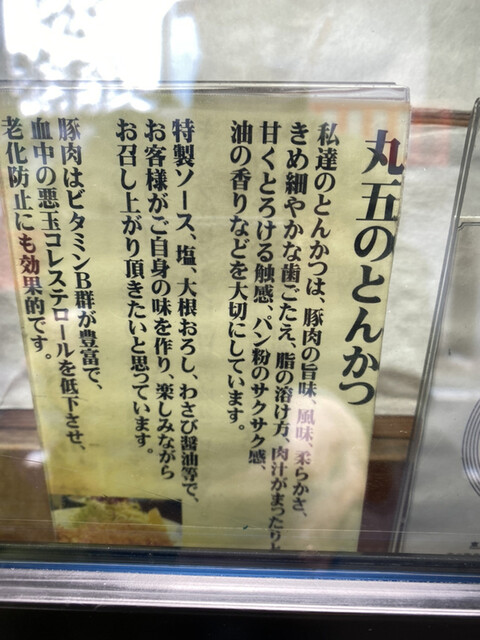 丸五のとんかつ
私達のとんかつは、豚肉の旨味、風味、柔らかさ、
きめ細やかな歯ごたえ、脂の溶け方、肉汁がまったりし
甘くとろける触感、パン粉のサクサク感、
油の香りなどを大切にしています。
特製ソース、塩、大根おろし、わさび醤油等で、
お客様がご自身の味を作り、楽しみながら
お召し上がり頂きたいと思っています。
豚肉はビタミンB群が豊富で、
血中の悪玉コレステロールを低下させ、
老化防止にも効果的です。